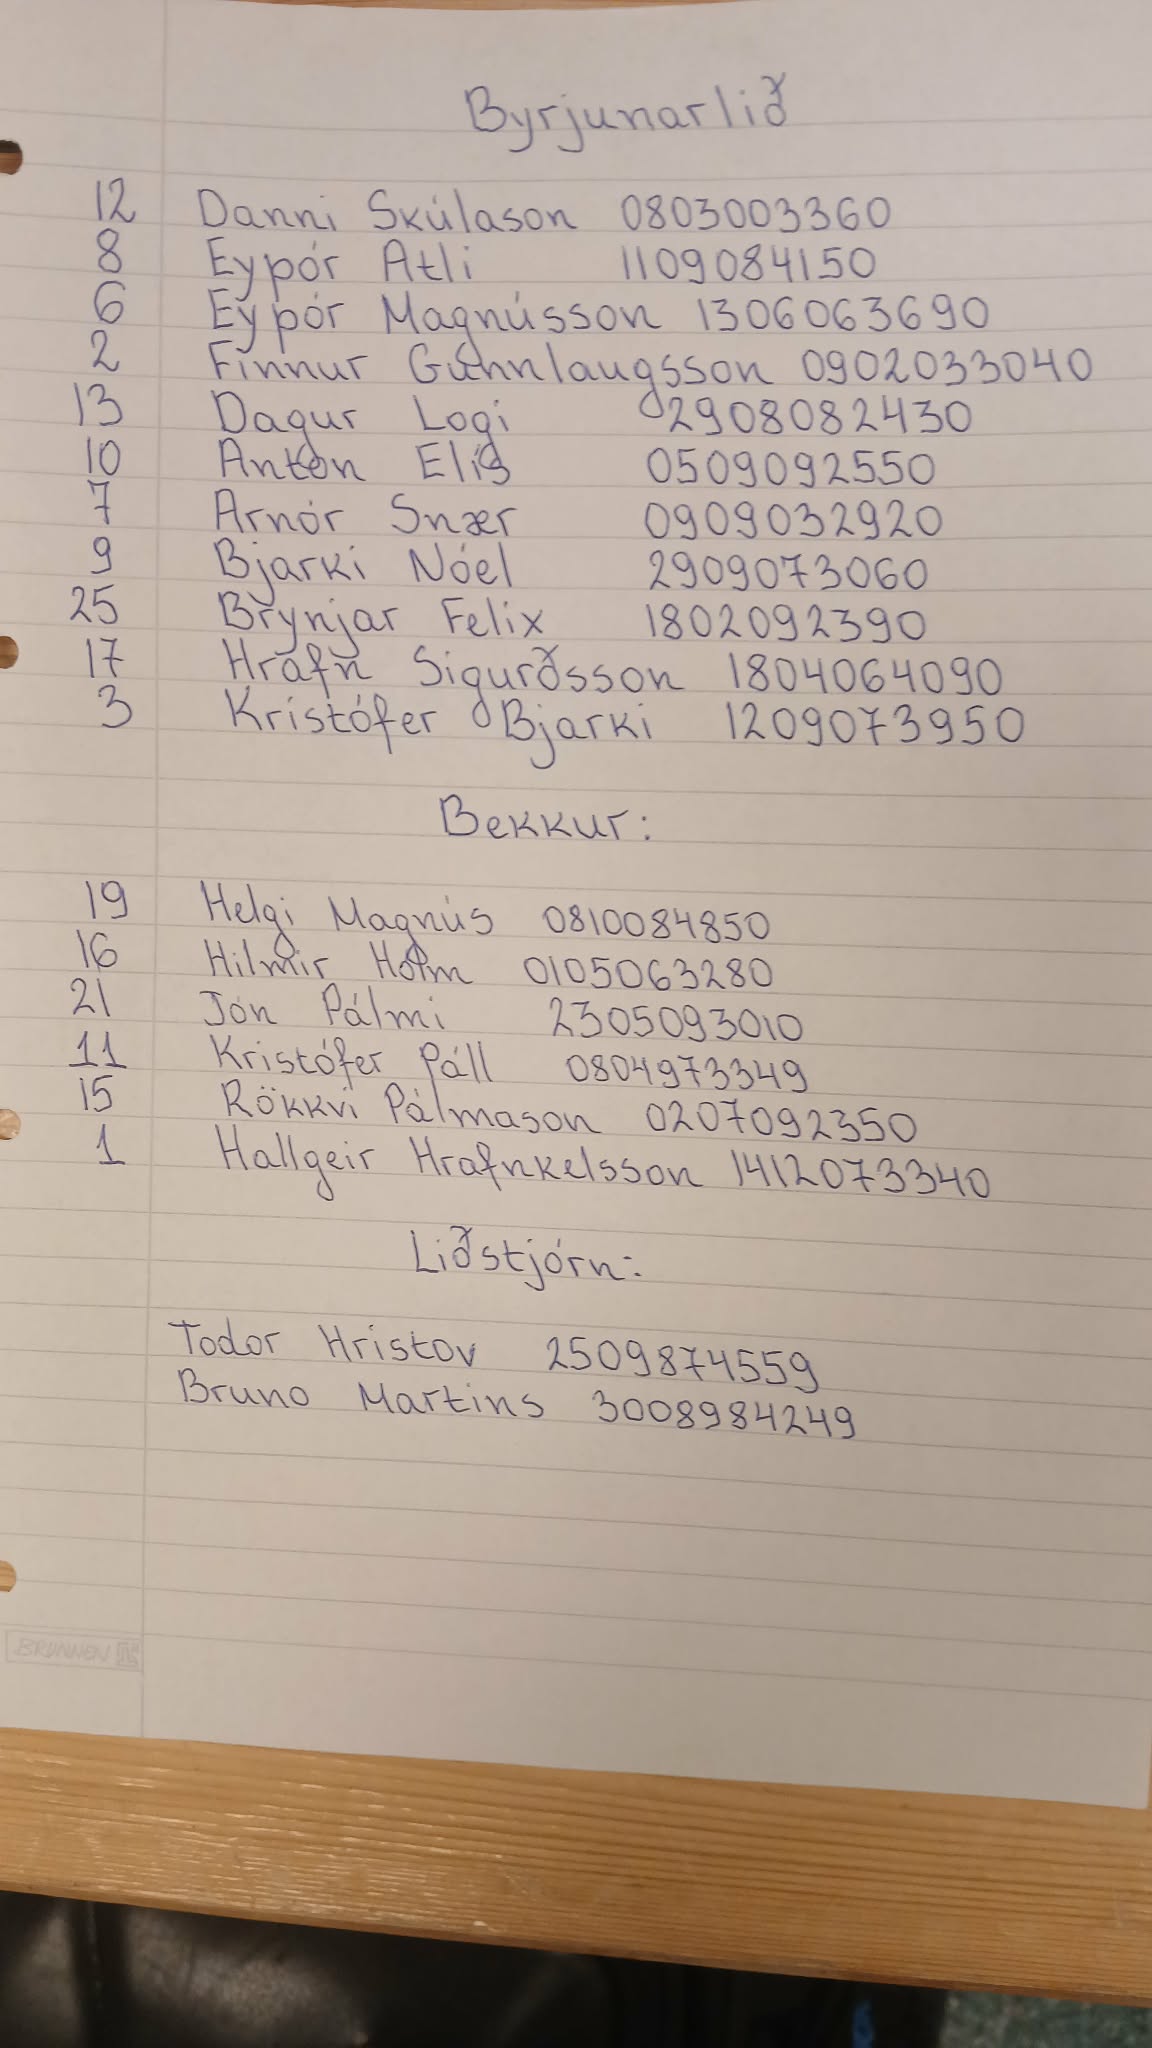 Byrjunarlið
12 Danni Skúlason 0803003360
8 Eyþór Atli 1109084150
6 Eyþór Magnússon 1306063690
2 Finnur Gunnlaugsson 0902033040
13 Dagur Logi 2908082430
10 Anton Elís 0509092550
7 Arnór Snær 0909032920
9 Bjarki Nóel 2909073060
25 Brynjar Felix 1802092390
17 Hrafn Sigurðsson 1804064090
3 Kristófer Bjarki 1209073950
Bekkur:
19 Helgi Magnús 0810084850
16 Hilmir Holm 0105063280
21 Jón Pálmi 2305093010
11 Kristófer Páll 0804973349
15 Rökkvi Pálmason 0207092350
1 Hallgeir Hrafnkelsson 1412073340
Liðstjórn:
Todor Hristov 2509874559
Bruno Martins 3008984249
BRUNNEN